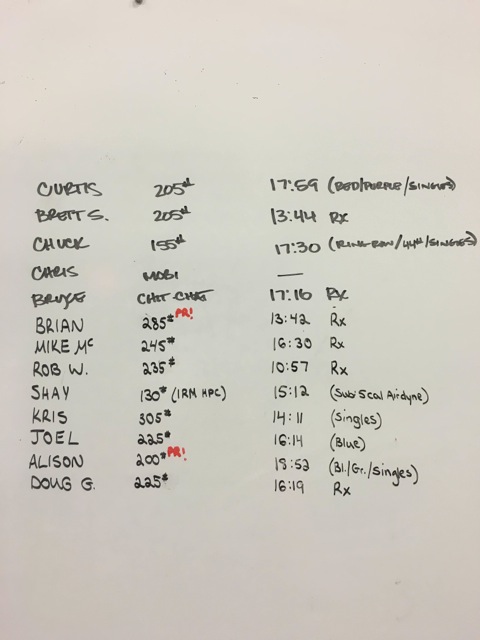 CURTIS 205# 17:59 (RED/PURPLE/SINGLES)
BRETT S. 205# 13:44 Rx
CHUCK 155# 17:30 (RING ROW/44#/SINGLES)
CHRIS MOBI —
BRUCE CHIT-CHAT 17:16 Rx
BRIAN 285# PR! 13:42 Rx
MIKE Mc 245# 16:30 Rx
ROB W. 235# 10:57 Rx
SHAY 130# (1RM HPC) 15:12 (Sub 5cal Airdyne)
KRIS 305# 14:11 (Singles)
JOEL 225# 16:14 (Blue)
ALISON 200# PR! 18:52 (Bl./Gr./Singles)
DOUG G. 225# 16:19 Rx